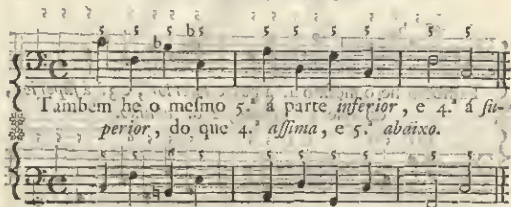 5 5 5 b5 5 5 5 5 5 5
Tambem he o meſmo 5.ª á parte inferior, e 4.ª á ſu-
perior, do que 4.ª aſſima, e 5.ª abaixo.